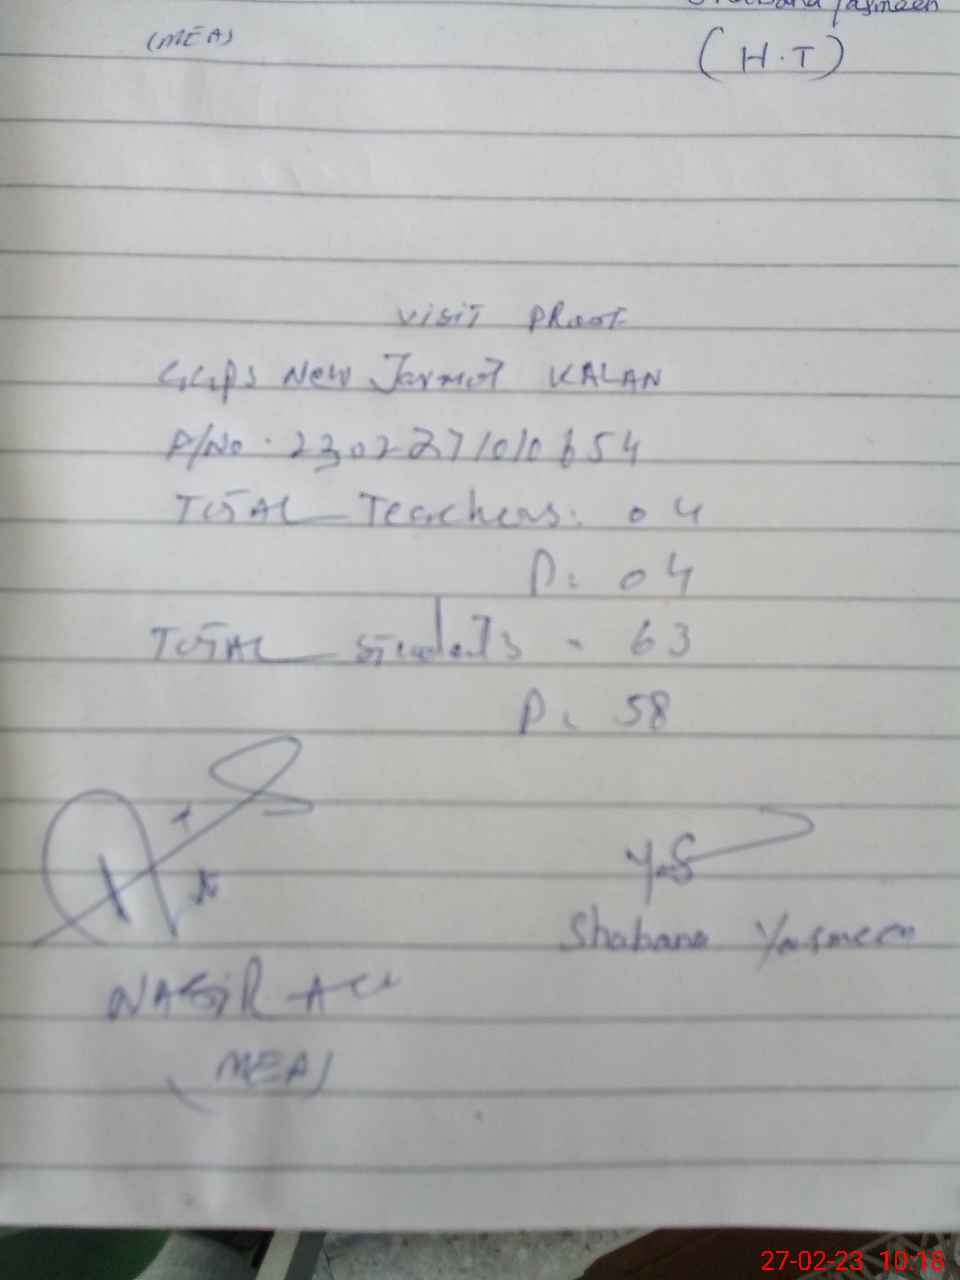 Shabana Yasmeen
(MEA)
(H.T)
VISIT PRoof
GGPS New Jarmot KALAN
P/No. 2302271010654
TOTAL Teachers. 04
P: 04
TOTAL students - 63
P: 58
Y.S
Shabana Yasmeen
NASIR Ali
(MEA)
27-02-23 10:18